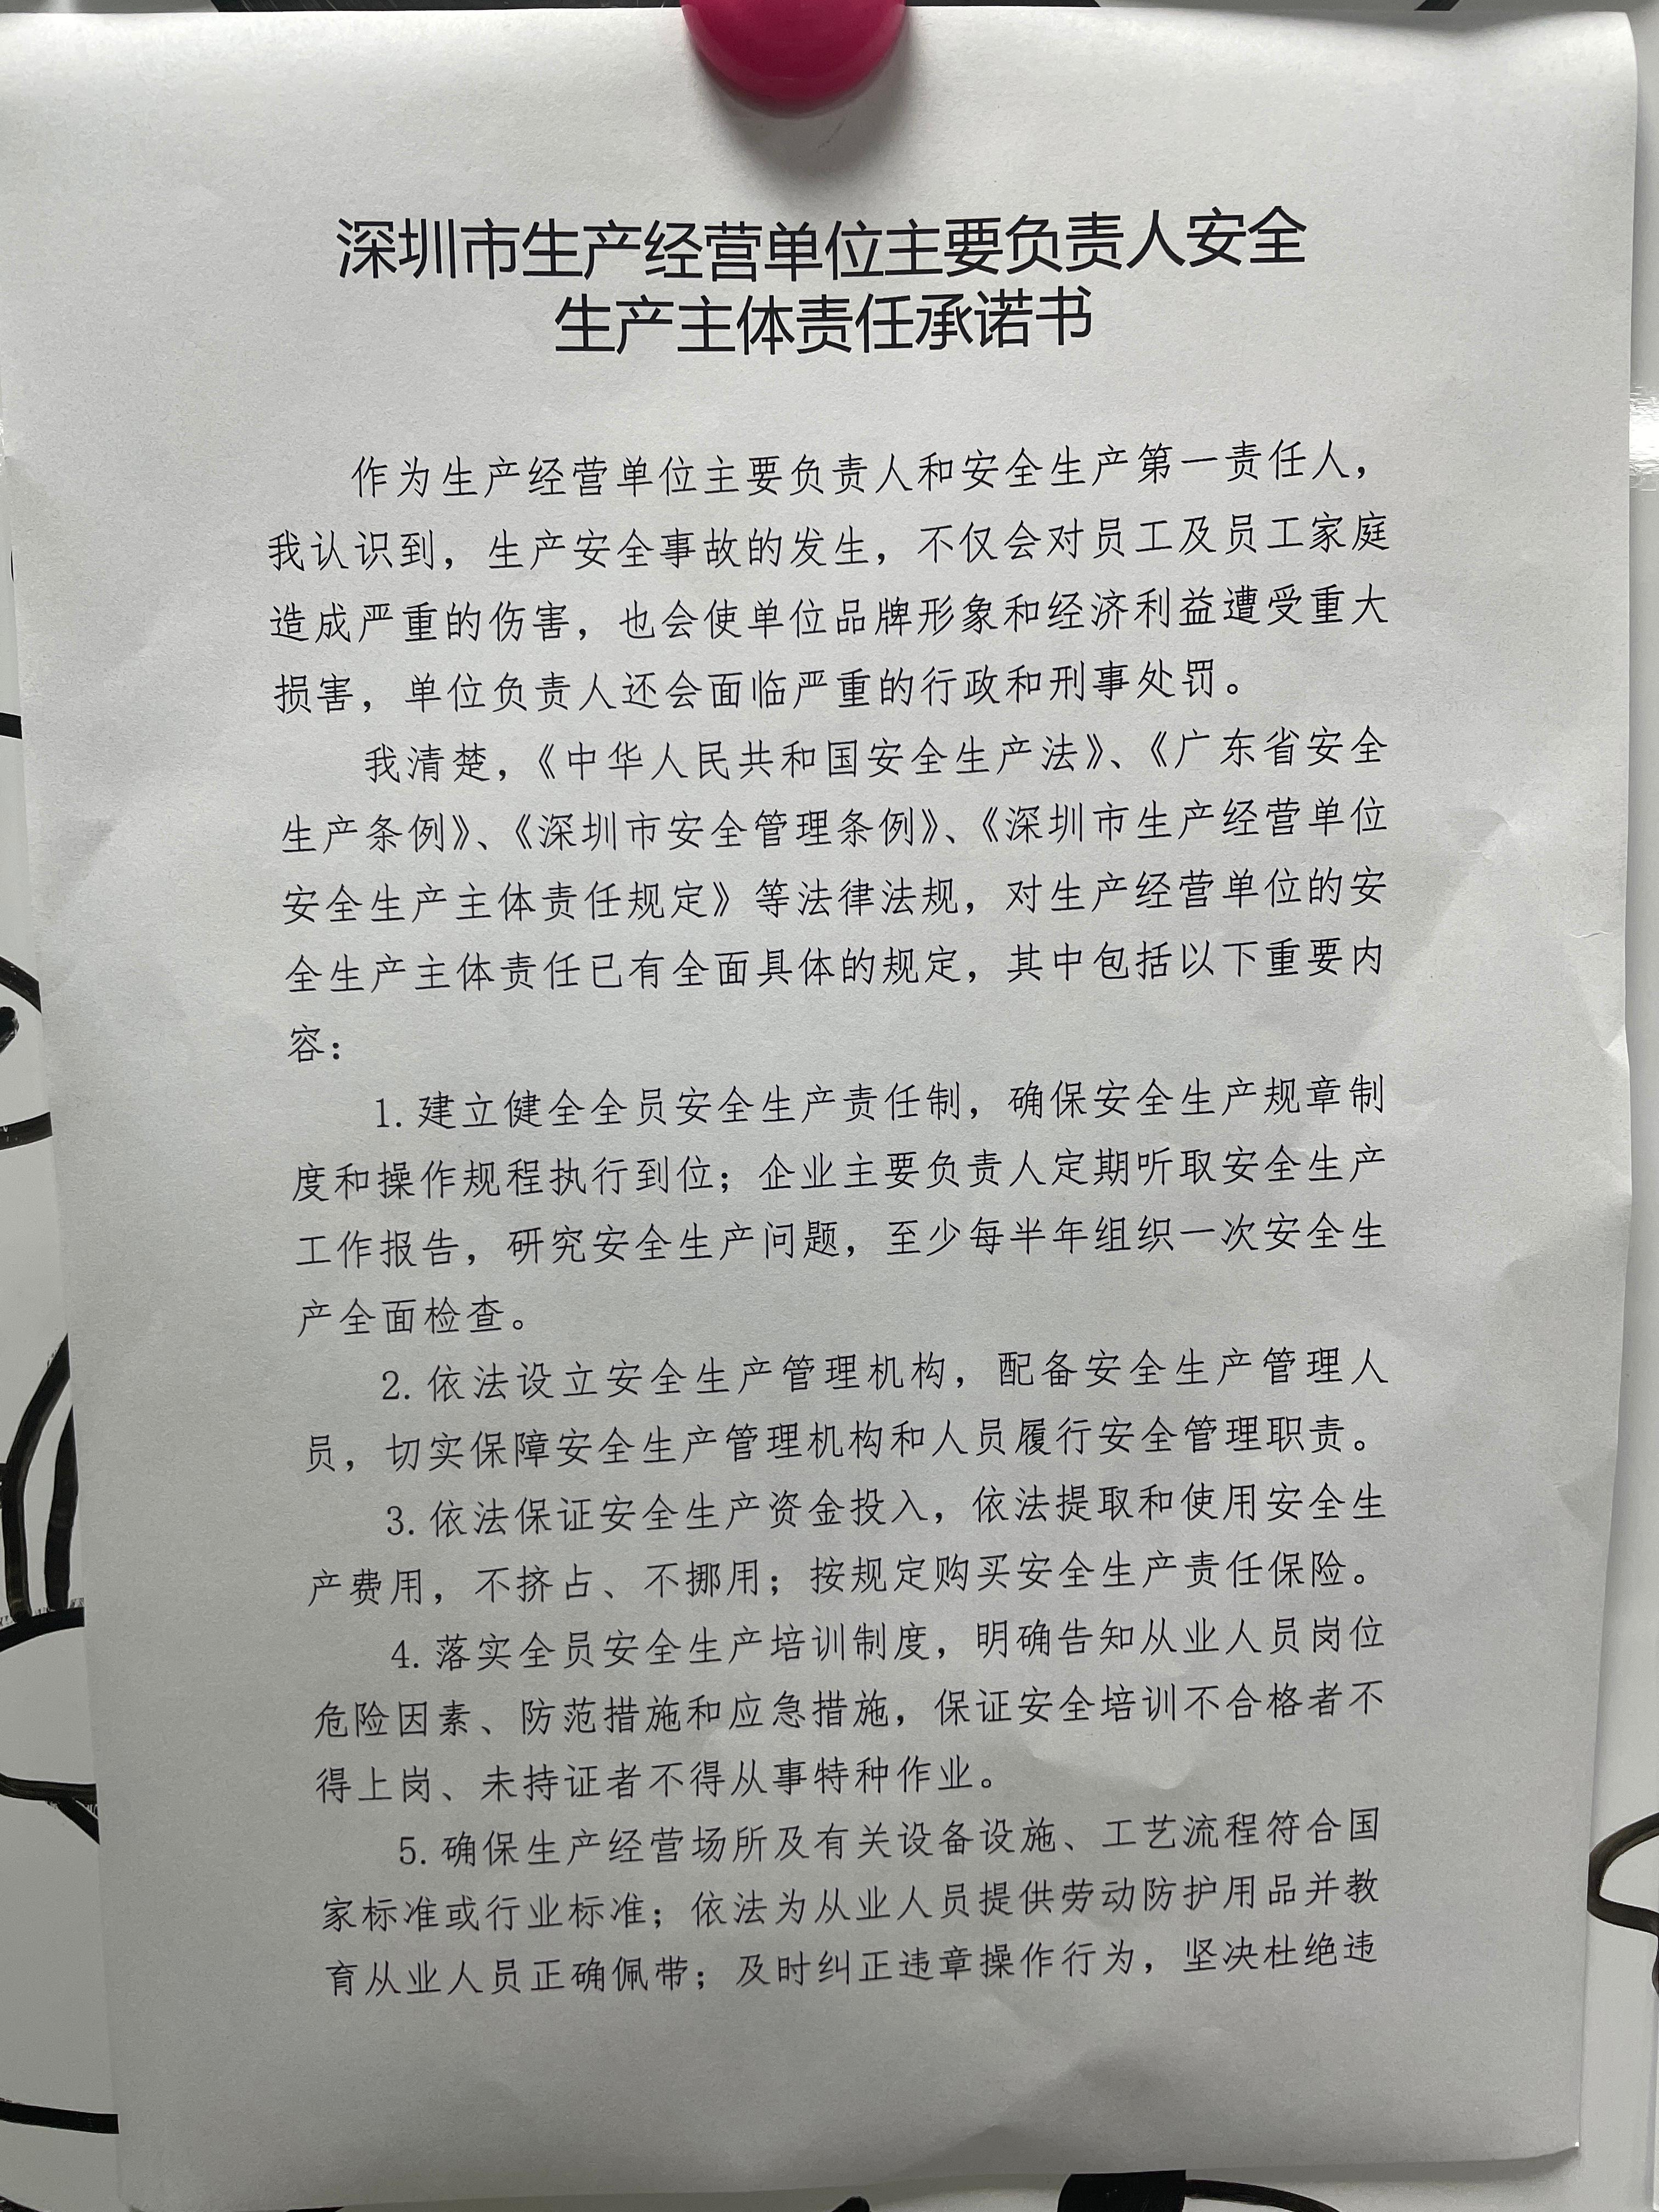 深圳市生产经营单位主要负责人安全
生产主体责任承诺书
作为生产经营单位主要负责人和安全生产第一责任人，
我认识到，生产安全事故的发生，不仅会对员工及员工家庭
造成严重的伤害，也会使单位品牌形象和经济利益遭受重大
损害，单位负责人还会面临严重的行政和刑事处罚。
我清楚，《中华人民共和国安全生产法》、《广东省安全
生产条例》、《深圳市安全管理条例》、《深圳市生产经营单位
安全生产主体责任规定》等法律法规，对生产经营单位的安
全生产主体责任已有全面具体的规定，其中包括以下重要内
容：
1. 建立健全全员安全生产责任制，确保安全生产规章制
度和操作规程执行到位；企业主要负责人定期听取安全生产
工作报告，研究安全生产问题，至少每半年组织一次安全生
产全面检查。
2. 依法设立安全生产管理机构，配备安全生产管理人
员，切实保障安全生产管理机构和人员履行安全管理职责。
3. 依法保证安全生产资金投入，依法提取和使用安全生
产费用，不挤占、不挪用；按规定购买安全生产责任保险。
4. 落实全员安全生产培训制度，明确告知从业人员岗位
危险因素、防范措施和应急措施，保证安全培训不合格者不
得上岗、未持证者不得从事特种作业。
5. 确保生产经营场所及有关设备设施、工艺流程符合国
家标准或行业标准；依法为从业人员提供劳动防护用品并教
育从业人员正确佩带；及时纠正违章操作行为，坚决杜绝违